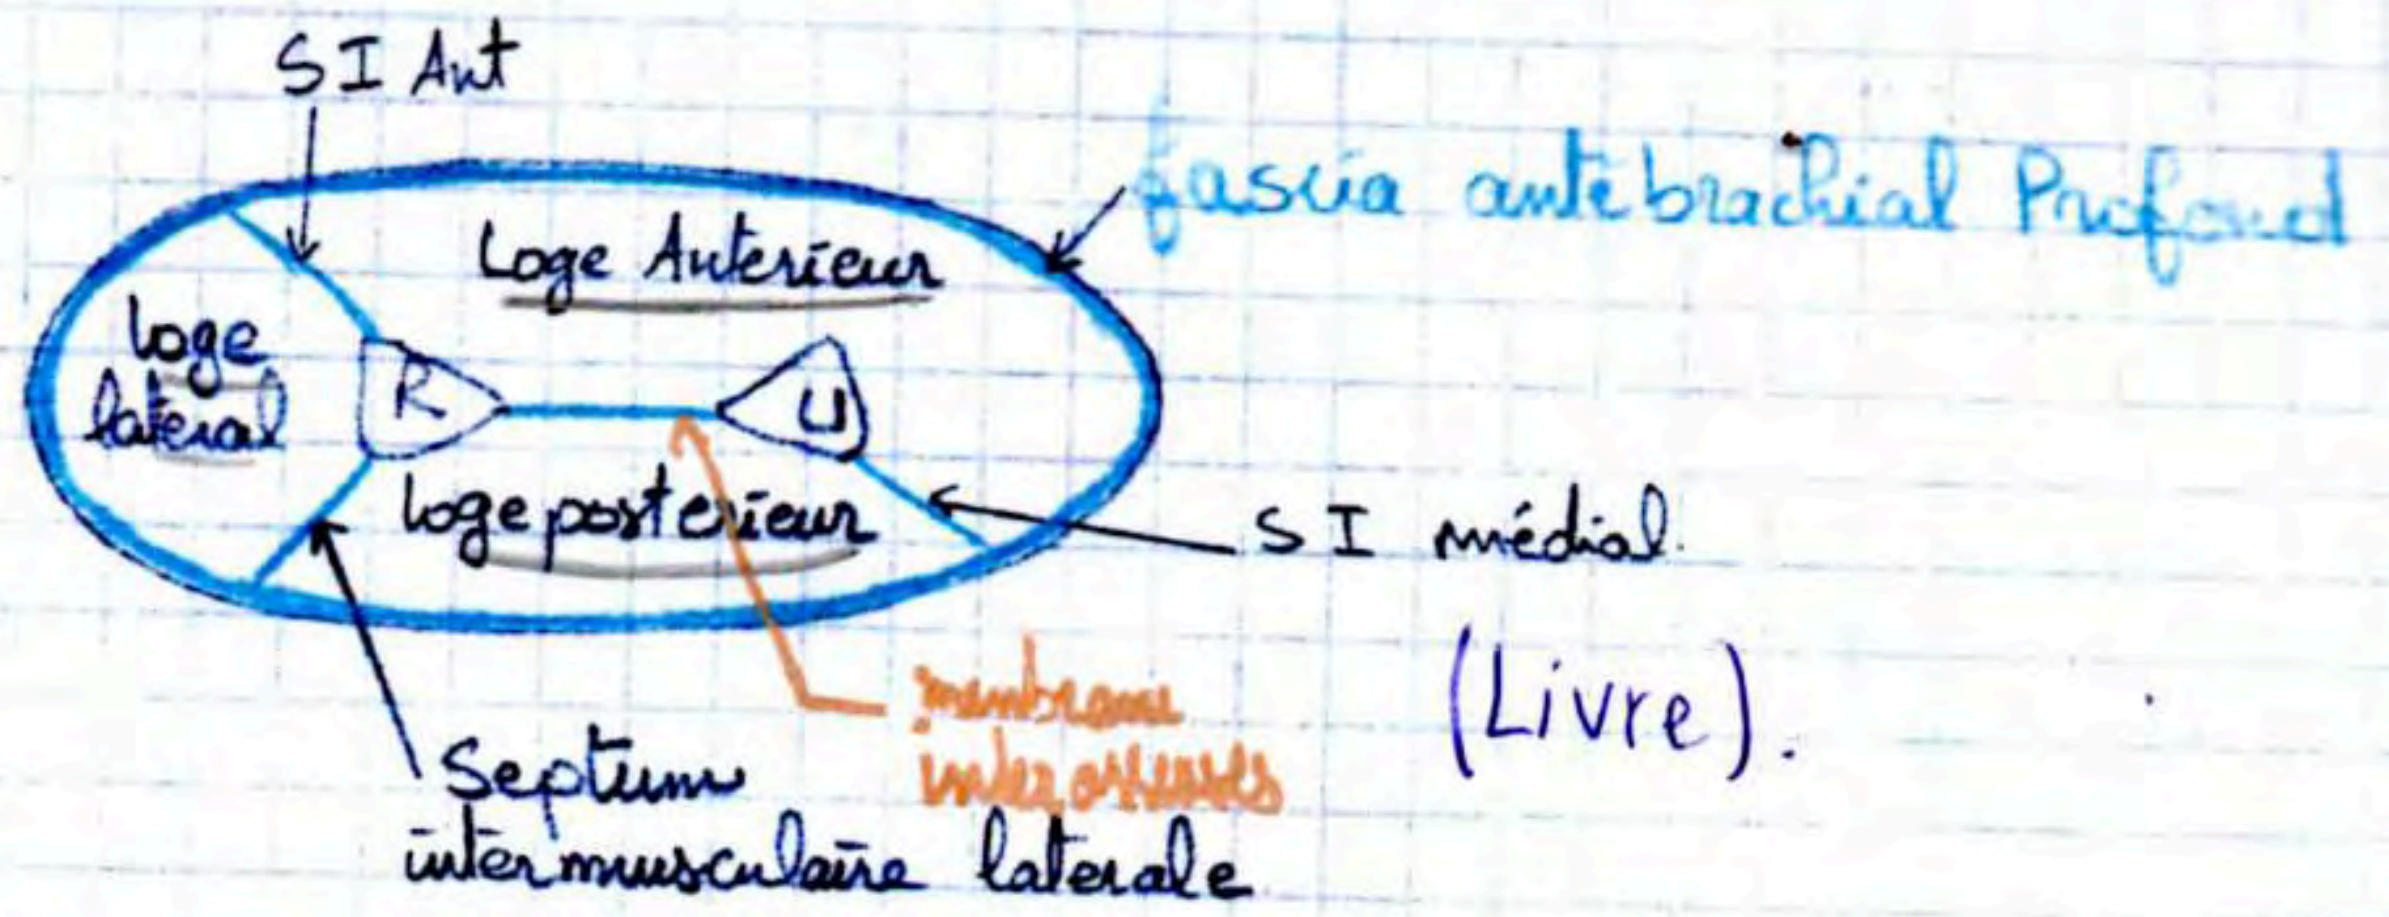 SI Ant
fascia antébrachial Profond
Loge Antérieur
loge
latéral
R
U
loge postérieur
SI médial.
(Livre).
membrane
interosseuses
Septum
intermusculaire laterale